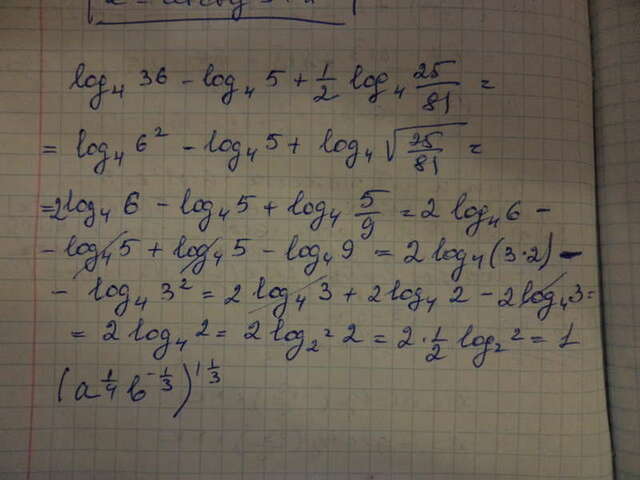 log₄ 36 - log₄ 5 + 1/2 log₄ 25/81 =
= log₄ 6² - log₄ 5 + log₄ √(25/81) =
= 2log₄ 6 - log₄ 5 + log₄ 5/9 = 2 log₄ 6 -
- log₄ 5 + log₄ 5 - log₄ 9 = 2 log₄ (3·2) -
- log₄ 3² = 2 log₄ 3 + 2 log₄ 2 - 2 log₄ 3 =
= 2 log₄ 2 = 2 log₂² 2 = 2 · 1/2 log₂ 2 = 1
(a^(1/4) b^(-1/3))^(1 1/3)